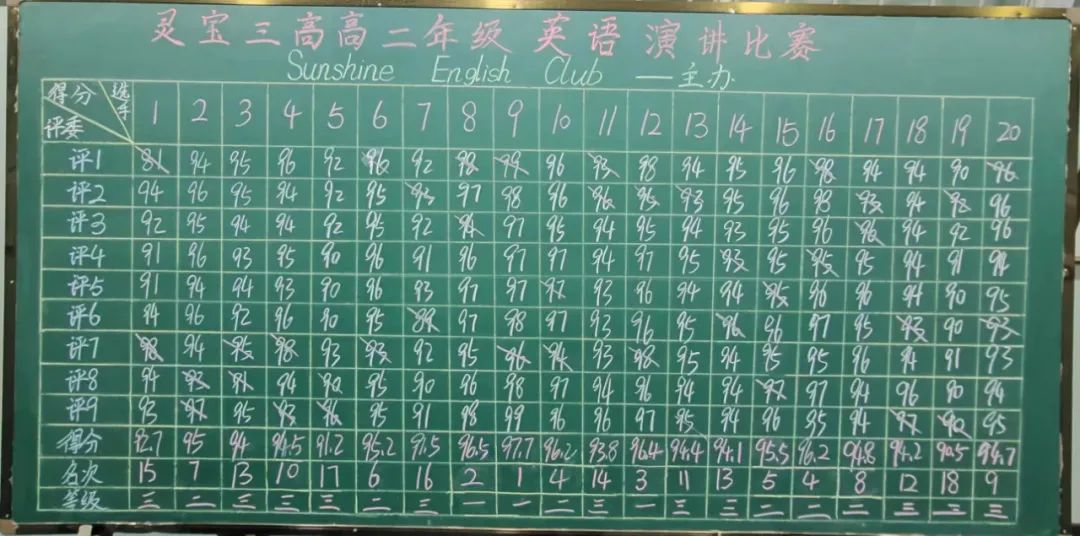 灵宝三高高二年级 英语演讲比赛
Sunshine English Club —主办
得分 选手 1 2 3 4 5 6 7 8 9 10 11 12 13 14 15 16 17 18 19 20
评委
评1 81 94 95 96 92 96 92 98 99 96 93 98 94 95 96 98 94 94 90 96
评2 94 96 95 94 92 95 93 97 98 96 96 95 93 95 96 98 93 94 92 96
评3 92 95 94 94 92 95 92 94 97 95 94 95 94 93 95 96 96 94 92 96
评4 91 96 93 95 90 96 91 96 97 97 94 97 95 93 95 95 95 94 91 94
评5 91 94 94 93 90 96 93 97 97 97 93 96 94 94 95 96 96 94 90 95
评6 94 96 92 96 90 95 89 97 98 97 93 96 95 96 96 97 95 93 90 93
评7 98 94 95 98 93 93 92 95 96 94 93 98 95 94 95 95 96 94 91 93
评8 94 93 91 94 90 95 90 96 98 97 94 96 94 94 97 97 94 96 90 94
评9 93 97 95 93 96 95 91 98 99 96 96 97 95 94 96 95 94 97 90 95
得分 92.7 95 94 94.5 91.2 95.2 91.5 96.5 97.7 96.2 93.8 96.4 94.4 94.1 95.5 96.2 94.8 94.2 90.5 94.7
名次 15 7 13 10 17 6 16 2 1 4 14 3 11 13 5 4 8 12 18 9
等级 三 二 三 三 三 二 三 一 一 二 三 一 三 三 二 二 二 三 三 三